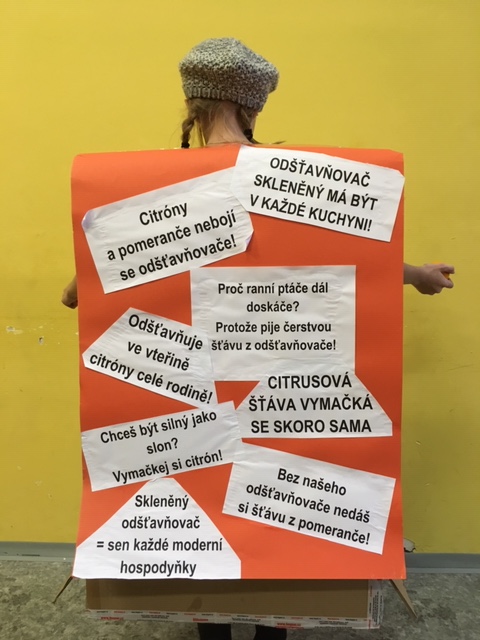 ODŠŤAVŇOVAČ
SKLENĚNÝ MÁ BÝT
V KAŽDÉ KUCHYNI!
Citróny
a pomeranče nebojí
se odšťavňovače!
Proč ranní ptáče dál
doskáče?
Protože pije čerstvou
šťávu z odšťavňovače!
Odšťavňuje
ve vteřině
citróny celé rodině!
CITRUSOVÁ
ŠŤÁVA VYMAČKÁ
SE SKORO SAMA
Chceš být silný jako
slon?
Vymačkej si citrón!
Bez našeho
odšťavňovače nedáš
si šťávu z pomeranče!
Skleněný
odšťavňovač
= sen každé moderní
hospodyňky